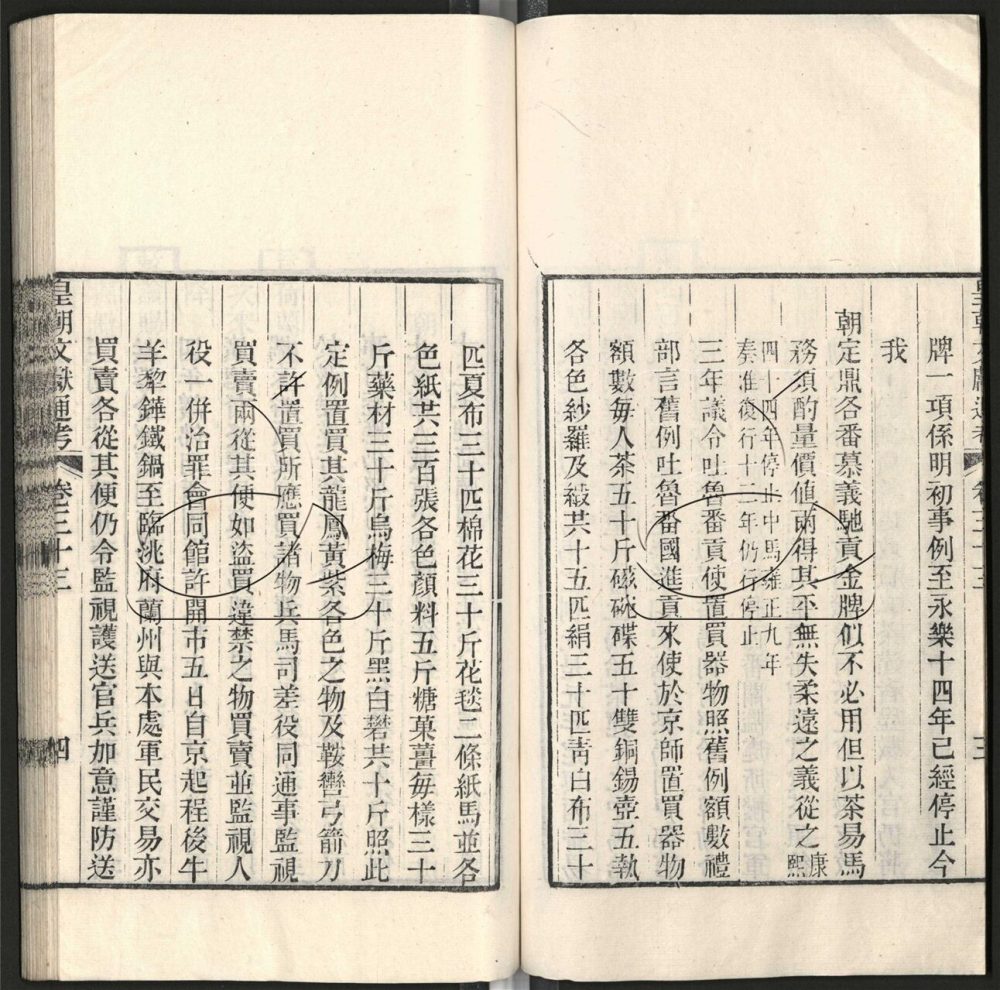 牌一項係明初事例至永樂十四年已經停止今
我
朝定鼎各番慕義馳貢金牌似不必用但以茶易馬
務須酌量價值兩得其平無失柔遠之義從之康熙
四十四年停止中馬雍正九年
奏准復行十三年仍行停止
三年議令吐魯番貢使置買器物照舊例額數禮
部言舊例吐魯番國進貢來使於京師置買器物
額數每人茶五十斤磁碗碟五十雙銅錫壺五執
各色紗羅及緞共十五匹絹三十匹青白布三十
匹夏布三十匹棉花三十斤花毯二條紙馬並各
色紙共三百張各色顏料五斤糖菓薑每樣三十
斤藥材三十斤烏梅三十斤黑白礬共十斤照此
定例置買其龍鳳黃紫各色之物及鞍轡弓箭刀
不許置買所應買諸物兵馬司差役同通事監視
買賣兩從其便如盜買違禁之物買賣並監視人
役一併治罪會同館許開市五日自京起程後牛
羊犂鏵鐵鍋至臨洮府蘭州與本處軍民交易亦
買賣各從其便仍令監視護送官兵加意謹防送
皇朝文獻通考 卷三十三 四